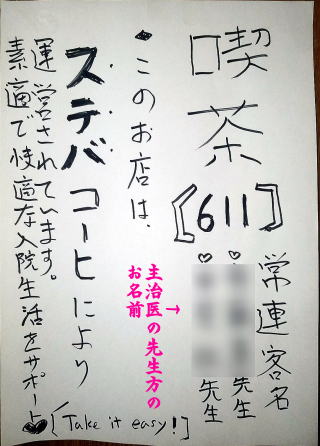 喫茶
【611】
常連客名
♡ 先生
♡ 先生
→主治医の先生方の
お名前
◆このお店は、
ステバコーヒーにより
運営されています。
素適で快適な入院生活をサポート
♥[Take it easy!]